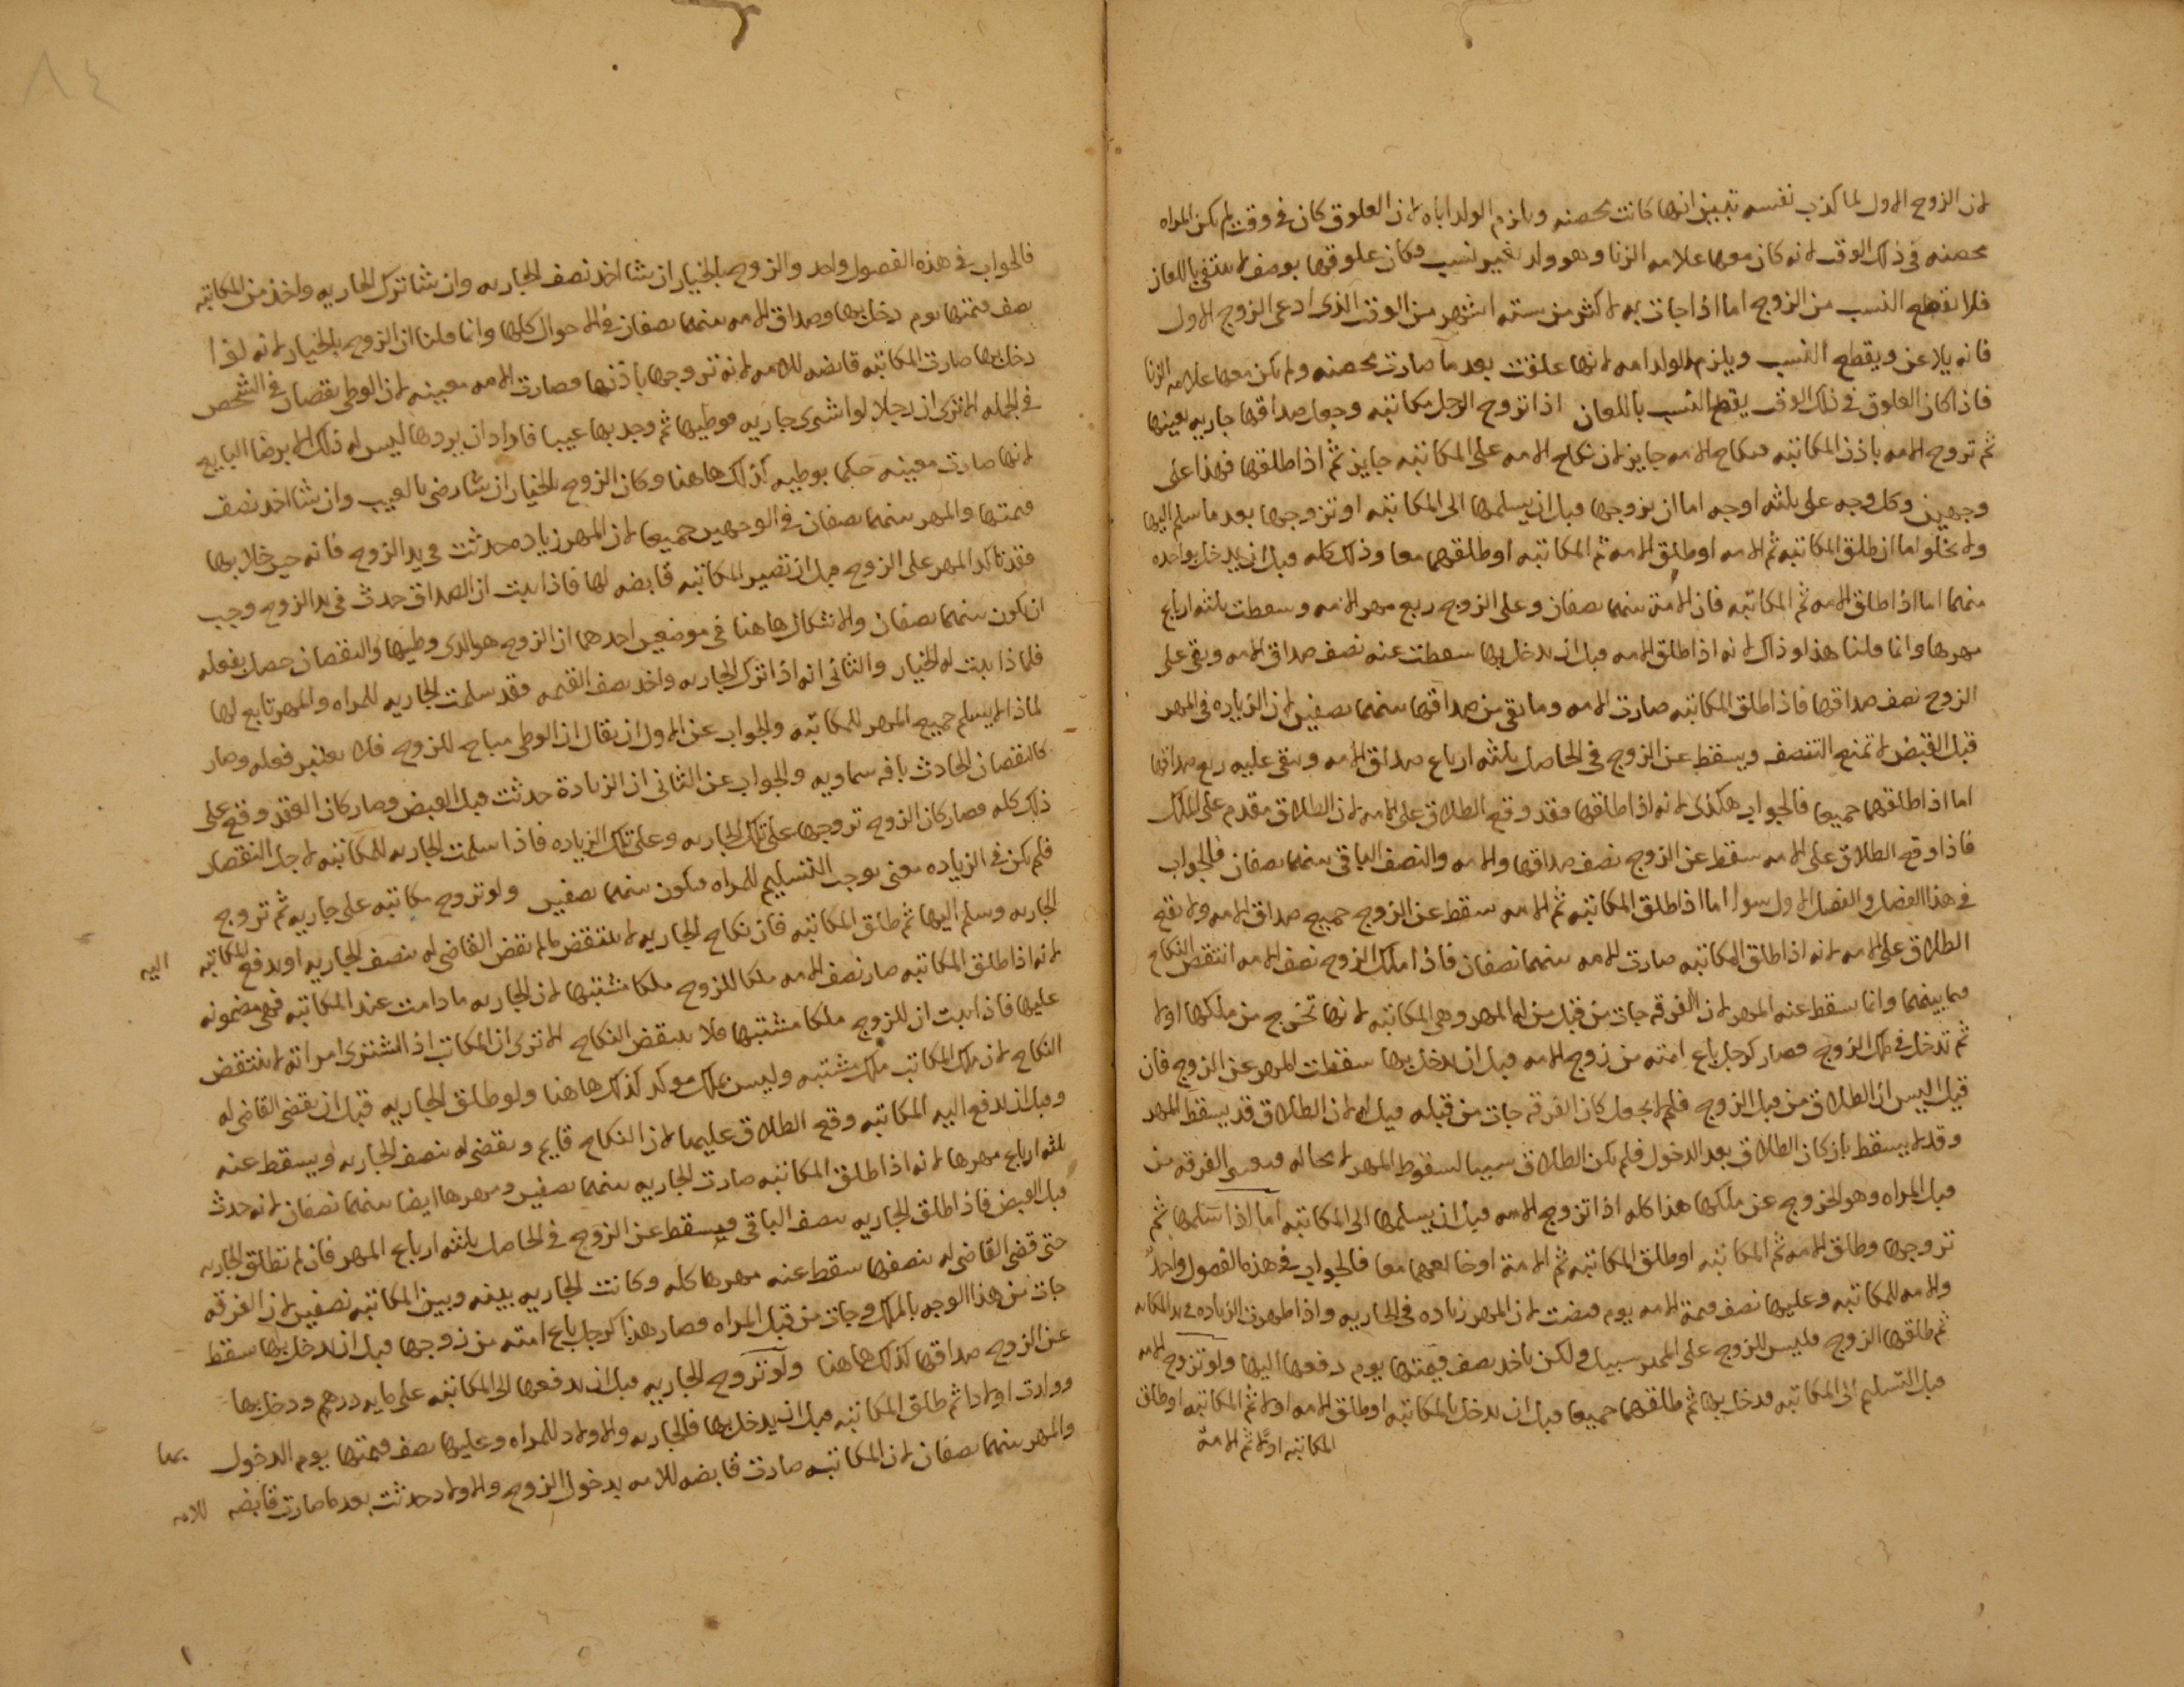 لان الزوج الاول لما كذب نفسه تبين انها كانت محصنه ويلزم الولد اباه لان العلوق كان في وقت لم تكن المراه
محصنه في ذلك الوقت لانه كان معها علامه الزنا وهو ولد بغير نسب وكان علوقها بوصف لا ينتفي باللعان
فلا ينقطع النسب من الزوج اما اذا جات به لاكثر من ستة اشهر من الوقت الذي ادعى الزوج الاول
فانه يلاعن ويقطع النسب ويلزم الولد امه لانها علقت بعد ما صارت محصنه ولم تكن معها علامه الزنا
فاذا كان العلوق في ذلك الوقت يقطع النسب باللعان اذا تزوج الرجل مكاتبه وجعل صداقها جاريه بعينها
ثم تزوج الامه باذن المكاتبه فنكاح الامه جايز لان نكاح الامه على المكاتبه جايز ثم اذا طلقها فهذا على
وجهين وكل وجه على ثلثه اوجه اما ان تزوجها قبل ان يسلمها الى المكاتبه او تزوجها بعد ما سلم اليها
ولا يخلوا اما ان طلق المكاتبه ثم الامه او طلق الامه ثم المكاتبه او طلقهما معا وذلك كله قبل ان يدخل بواحده
منهما اما اذا طلق الامه ثم المكاتبه فان الامة بينهما نصفان وعلى الزوج ربع مهر الامه وسقطت ثلثه ارباع
مهرها وانما قلنا هذا وذاك لانه اذا طلق الامه قبل ان يدخل بها سقطت عنه نصف صداق الامه وبقى على
الزوج نصف صداقها فاذا طلق المكاتبه صارت الامه وما بقى من صداقها بينهما نصفين لان الزياده في المهر
قبل القبض لا تمنع التنصف ويسقط عن الزوج في الحاصل ثلثه ارباع صداق الامه وبقى عليه ربع صداقها
اما اذا طلقهما جميعا فالجواب هكذى لانه اذا طلقها فقد وقع الطلاق على الامه لان الطلاق مقدم على الملك
فاذا وقع الطلاق على الامه سقط عن الزوج نصف صداقها والامه والنصف الباقي بينهما نصفان فالجواب
في هذا الفصل والفصل الاول سوا اما اذا طلق المكاتبه ثم الامه سقط عن الزوج جميع صداق الامه ولا يقع
الطلاق على الامه لانه اذا طلق المكاتبه صارت الامه بينهما نصفان فاذا ملك الزوج نصف الامه انتقض النكاح
فيما بينهما وانما سقط عنه المهر لان الفرقه جات من قبل من له المهر وهي المكاتبه لانها تخرج من ملكها اولا
ثم تدخل في ملك الزوج فصار كرجل باع امته من زوج الامه قبل ان يدخل بها سقطت المهر عن الزوج فان
قيل اليس ان الطلاق من قبل الزوج فلم لا يجعل كان الفرقه جات من قبله قيل له لان الطلاق قد يسقط المهر
وقد لا يسقط بان كان الطلاق بعد الدخول فلم يكن الطلاق سببا لسقوط المهر لا محاله الفرقه من
قبل المراه وهو الخروج عن ملكها هذا كله اذا تزوج الامه قبل ان يسلمها الى المكاتبه اما اذا سلمها ثم
تزوجها وطلق الامه ثم المكاتبه او طلق المكاتبه ثم الامة او معا فالجواب في هذه الفصول واحد
والامه للمكاتبه وعليها نصف قيمة الامه يوم قبضت لان المهر زياده في الجاريه واذا ظهرت الزياده في يد المكاتبه
ثم طلقها الزوج فليس للزوج على المهر سبيل ولكن ياخذ نصف قيمتها يوم دفعها اليها ولو تزوج الامه
قبل التسليم الى المكاتبه فدخل بها ثم طلقهما جميعا قبل ان يدخل بالمكاتبه او طلق الامه اولا ثم المكاتبه او طلق
المكاتبه اولا ثم الامة
فالجواب في هذه الفصول واحد والزوج بالخيار ان شا اخذ نصف الجاريه وان شا ترك الجاريه واخذ من المكاتبه
نصف قيمتها يوم دخل بها وصداق الامه بينهما نصفان في الاحوال كلها وانما قلنا ان الزوج بالخيار لانه لما
دخل بها صارت المكاتبه قابضه للامه لانه تزوجها باذنها فصارت الامه معيبه لان الوطى نقصان في الشخص
في الجمله الا ترى ان رجلا لو اشترى جاريه فوطيها ثم وجد بها عيبا فاراد ان يردها ليس له ذلك الا برضا البايع
لانها صارت معيبه حكما بوطيه كذلك هاهنا وكان الزوج بالخيار ان شا رضى بالعيب وان شا اخذ نصف
قيمتها والمهر بينهما نصفان في الوجهين جميعا لان المهر زياده حدثت في يد الزوج فانه حين خلا بها
فقد تاكد المهر على الزوج قبل ان تصير المكاتبه قابضه لها فاذا ثبت ان الصداق حدث في يد الزوج وجب
ان يكون بينهما نصفان والاشكال هاهنا في موضعين احدهما ان الزوج هو الذى وطيها والنقصان حصل بفعله
فلماذا يثبت له الخيار والثاني انه اذا ترك الجاريه واخذ نصف القيمه فقد سلمت الجاريه للمراه والمهر تابع لها
لماذا لا يسلم جميع المهر للمكاتبه والجواب عن الاول ان يقال ان الوطى مباح للزوج فلا يعتبر فعله وصار
كالنقصان الحادث بافه سماويه والجواب عن الثاني ان الزيادة حدثت قبل القبض وصار كان العقد وقع على
ذلك كله فصار كان الزوج تزوجها على تلك الجاريه وعلى تلك الزياده فاذا سلمت الجاريه للمكاتبه لاجل النقصان
فلم يكن في الزياده معنى يوجب التسليم للمراه فيكون بينهما نصفين ولو تزوج مكاتبه على جاريه ثم تزوج
الجاريه وسلم اليها ثم طلق المكاتبه فان نكاح الجاريه لا ينتقض مالم يقض القاضى له بنصف الجاريه او يدفع المكاتبه اليه
لانه اذا طلق المكاتبه صار نصف الامه ملكا للزوج ملكا مشتبها لان الجاريه ما دامت عند المكاتبه فهى مضمونه
عليها فاذا ثبت ان للزوج ملكا مشتبها فلا ينتقض النكاح الا ترى ان المكاتب اذا اشترى امراته لا ينتقض
النكاح لان ملك المكاتب ملك مشتبه وليس بملك موكد كذلك هاهنا ولو طلق الجاريه قبل ان يقضى القاضى له
وقبل ان يدفع اليه المكاتبه وقع الطلاق عليهما لان النكاح قايم ويقضى له بنصف الجاريه ويسقط عنه
ثلثه ارباع مهرها لانه اذا طلق المكاتبه صارت الجاريه بينهما نصفين ومهرها ايضا بينهما نصفان لانه حدث
قبل القبض فاذا طلق الجاريه نصف الباقي فيسقط عن الزوج في الحاصل ثلثه ارباع المهر فان لم تطلق الجاريه
حتى قضى القاضى له بنصفها سقط عنه مهرها كله وكانت الجاريه بينه وبين المكاتبه نصفين لان الفرقه
جات من هذا الوجه بالملك وجات من قبل المراه فصار هذا كرجل باع امته من زوجها قبل ان يدخل بها سقط
عن الزوج صداقها كذلك هاهنا ولو تزوج الجاريه قبل ان يدفعها الى المكاتبه على مايه درهم ودخل بها
وولدت اولادا ثم طلق المكاتبه قبل ان يدخل بها فالجاريه والاولاد للمراه وعليها نصف قيمتها يوم الدخول بها
والمهر بينهما نصفان لان المكاتبه صارت قابضه للامه بدخول الزوج والاولاد حدثت بعد ما صارت قابضه للامه